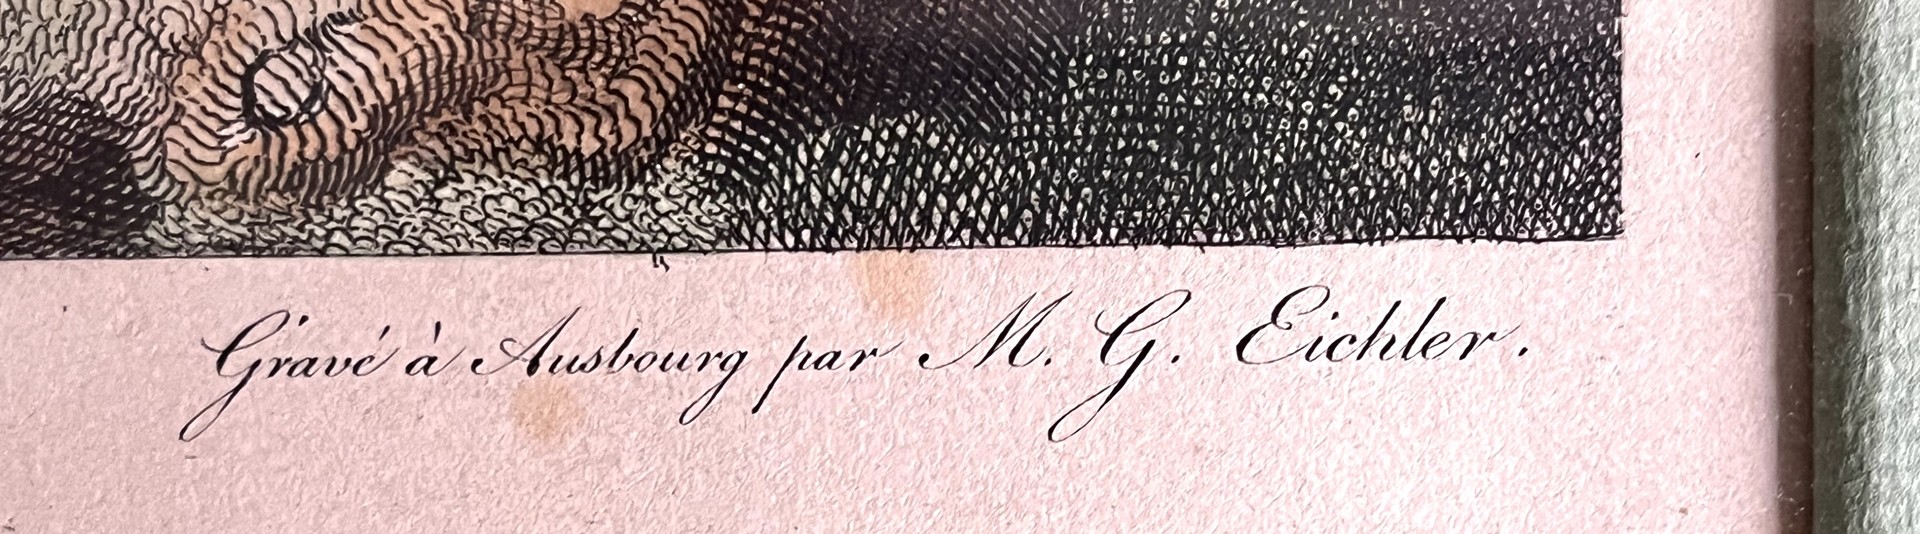 Gravé à Ausbourg par M. G. Eichler.